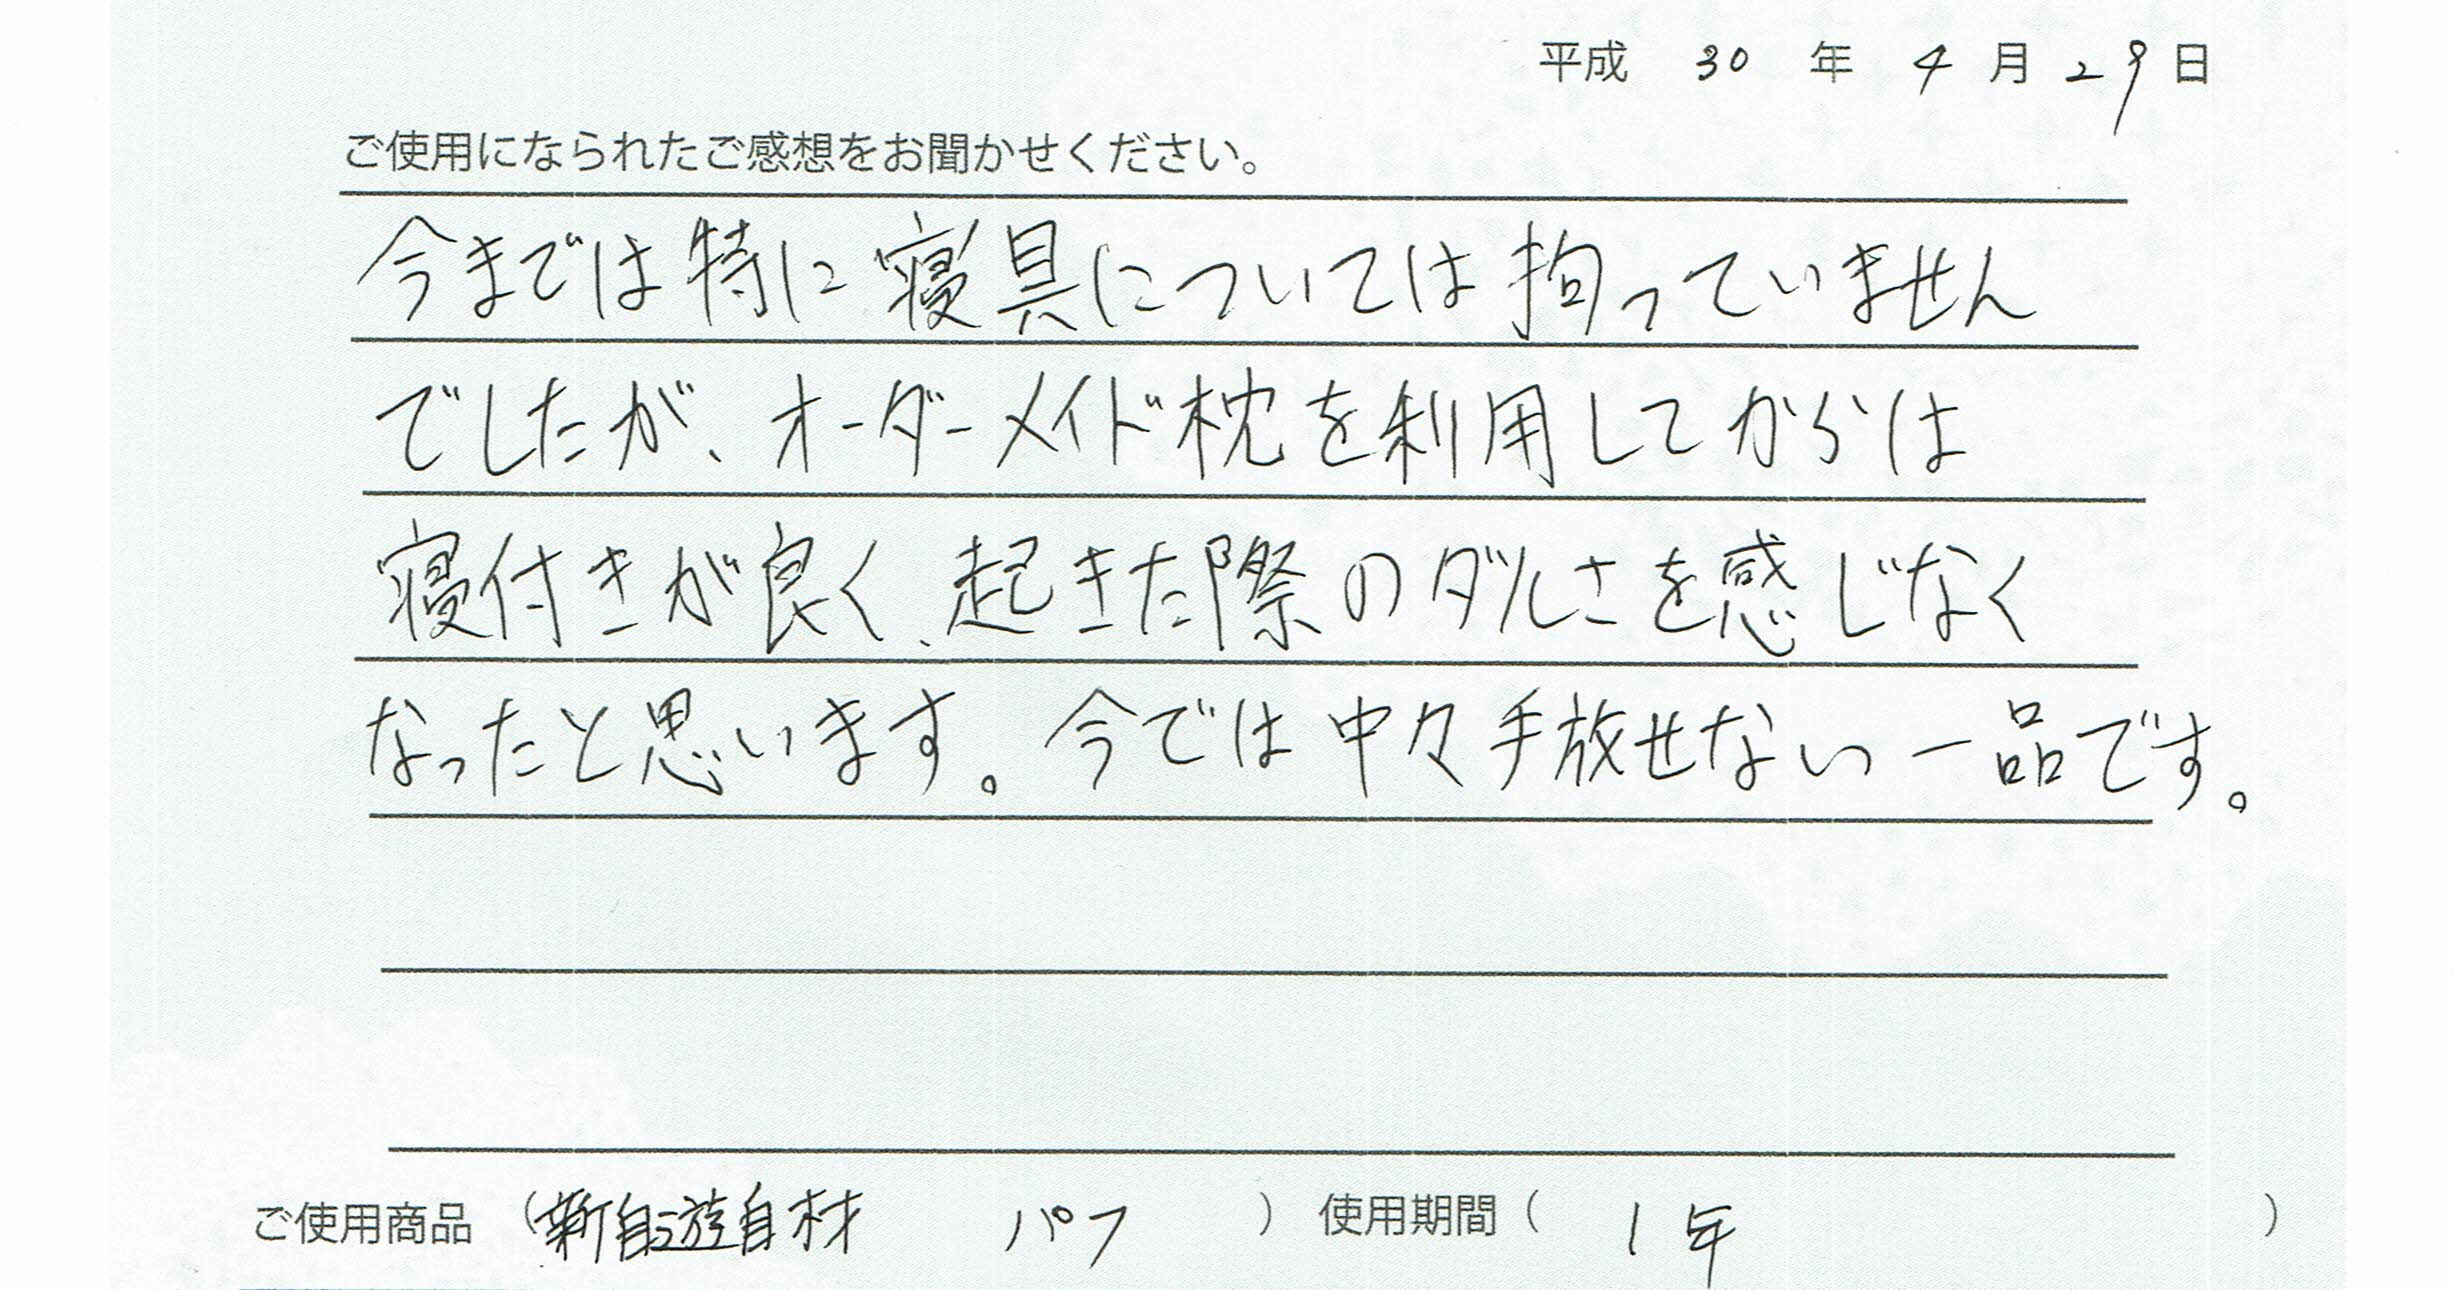 平成 30 年 4 月 29 日
ご使用になられたご感想をお聞かせください。
今までは特に寝具については拘っていません
でしたが、オーダーメイド枕を利用してからは
寝付きが良く、起きた際のダルさを感じなく
なったと思います。今では中々手放せない一品です。
ご使用商品 (新自遊自材 パフ ) 使用期間 ( 1年 )